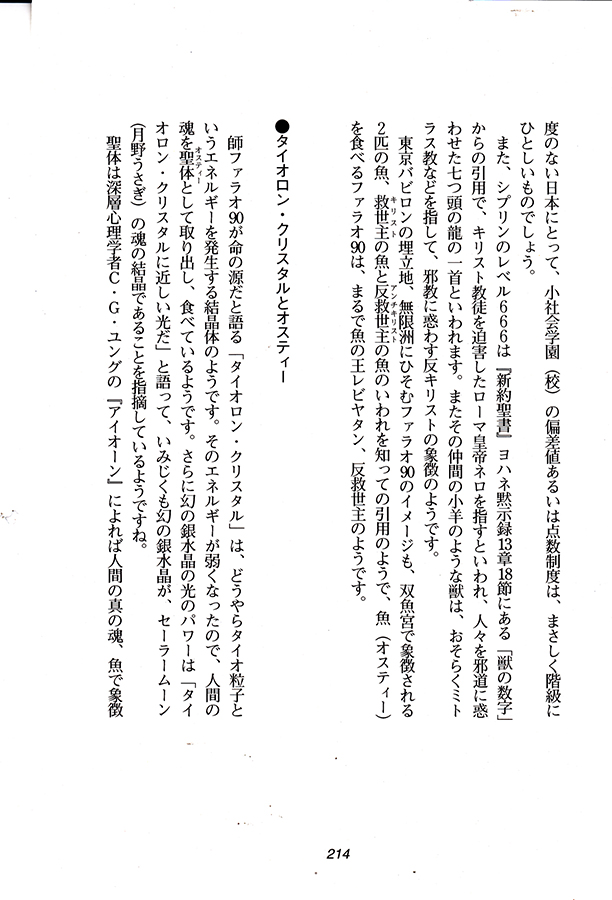 度のない日本にとって、小社会学園（校）の偏差値あるいは点数制度は、まさしく階級に
ひとしいものでしょう。
また、シプリンのレベル666は『新約聖書』ヨハネ黙示録13章18節にある「獣の数字」
からの引用で、キリスト教徒を迫害したローマ皇帝ネロを指すといわれ、人々を邪道に惑
わせた七つ頭の龍の一首といわれます。またその仲間の小羊のような獣は、おそらくミト
ラス教などを指して、邪教に惑わす反キリストの象徴のようです。
東京バビロンの埋立地、無限洲にひそむファラオ90のイメージも、双魚宮で象徴される
2匹の魚、救世主の魚と反救世主の魚のいわれを知っての引用のようで、魚（オスティー）
キリスト
アンチキリスト
を食べるファラオ90は、まるで魚の王レビヤタン、反救世主のようです。
●タイオロン・クリスタルとオスティー
師ファラオ90が命の源だと語る「タイオロン・クリスタル」は、どうやらタイオ粒子と
いうエネルギーを発生する結晶体のようです。そのエネルギーが弱くなったので、人間の
魂を聖体として取り出し、食べているようです。さらに幻の銀水晶の光のパワーは「タイ
オスティー
オロン・クリスタルに近しい光だ」と語って、いみじくも幻の銀水晶が、セーラームーン
（月野うさぎ）の魂の結晶であることを指摘しているようですね。
聖体は深層心理学者C・G・ユングの『アイオーン』によれば人間の真の魂、魚で象徴
214